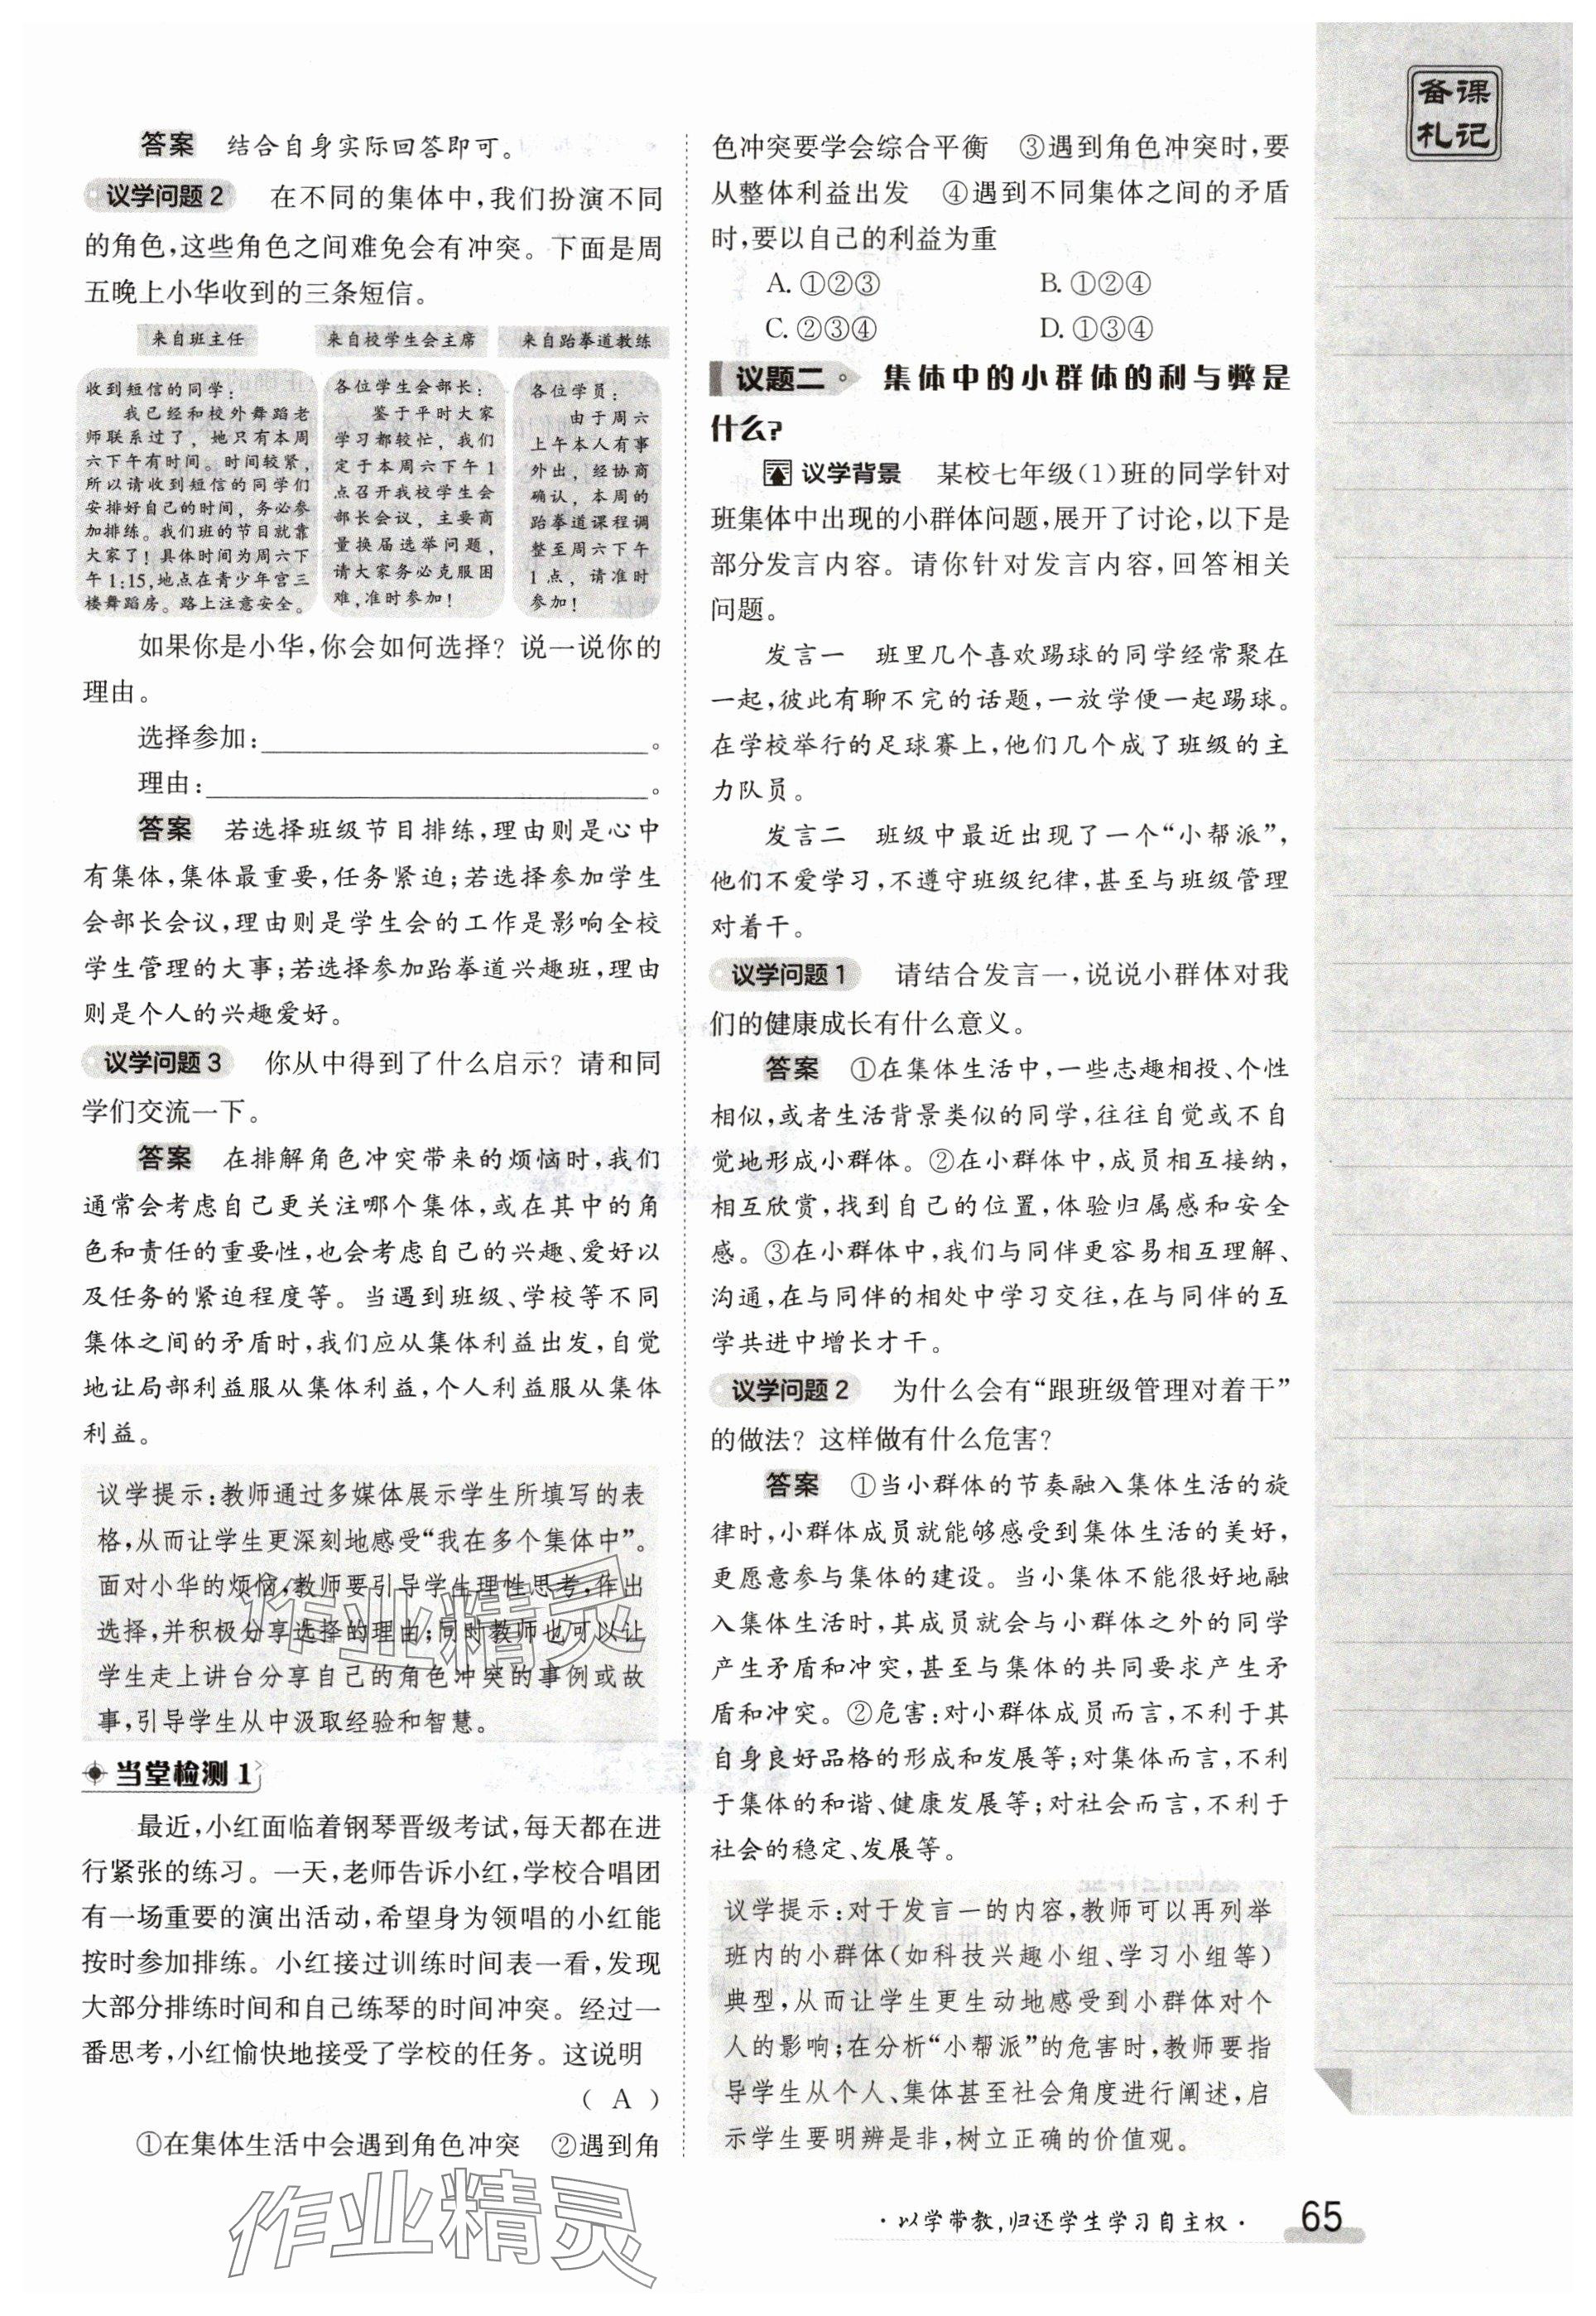 备课
札记
答案 结合自身实际回答即可。
议学问题2 在不同的集体中,我们扮演不同
的角色,这些角色之间难免会有冲突。下面是周
五晚上小华收到的三条短信。
来自班主任
收到短信的同学:
我已经和校外舞蹈老
师联系过了，她只有本周
六下午有时间。时间较紧,
所以请收到短信的同学们
安排好自己的时间，务必参
加排练。我们班的节目就靠
大家了！具体时间为周六下
午1:15,地点在青少年宫三
楼舞蹈房。路上注意安全。
来自校学生会主席
各位学生会部长:
鉴于平时大家
学习都较忙，我们
定于本周六下午1
点召开我校学生会
部长会议，主要商
量换届选举问题，
请大家务必克服困
难,准时参加!
来自跆拳道教练
各位学员:
由于周六
上午本人有事
外出，经协商
确认，本周的
跆拳道课程调
整至周六下午
1点，请准时
参加!
如果你是小华,你会如何选择？说一说你的
理由。
选择参加:____________________。
理由:____________________。
答案 若选择班级节目排练,理由则是心中
有集体,集体最重要,任务紧迫;若选择参加学生
会部长会议,理由则是学生会的工作是影响全校
学生管理的大事;若选择参加跆拳道兴趣班,理由
则是个人的兴趣爱好。
议学问题3 你从中得到了什么启示？请和同
学们交流一下。
答案 在排解角色冲突带来的烦恼时,我们
通常会考虑自己更关注哪个集体,或在其中的角
色和责任的重要性,也会考虑自己的兴趣、爱好以
及任务的紧迫程度等。当遇到班级、学校等不同
集体之间的矛盾时,我们应从集体利益出发,自觉
地让局部利益服从集体利益,个人利益服从集体
利益。
议学提示:教师通过多媒体展示学生所填写的表
格,从而让学生更深刻地感受“我在多个集体中”。
面对小华的烦恼,教师要引导学生理性思考,作出
选择,并积极分享选择的理由;同时教师也可以让
学生走上讲台分享自己的角色冲突的事例或故
事,引导学生从中汲取经验和智慧。
当堂检测1
最近,小红面临着钢琴晋级考试,每天都在进
行紧张的练习。一天,老师告诉小红,学校合唱团
有一场重要的演出活动,希望身为领唱的小红能
按时参加排练。小红接过训练时间表一看,发现
大部分排练时间和自己练琴的时间冲突。经过一
番思考,小红愉快地接受了学校的任务。这说明
( A )
①在集体生活中会遇到角色冲突 ②遇到角
色冲突要学会综合平衡 ③遇到角色冲突时,要
从整体利益出发 ④遇到不同集体之间的矛盾
时,要以自己的利益为重
A. ①②③ B. ①②④
C. ②③④ D. ①③④
议题二 集体中的小群体的利与弊是
什么?
议学背景 某校七年级(1)班的同学针对
班集体中出现的小群体问题,展开了讨论,以下是
部分发言内容。请你针对发言内容,回答相关
问题。
发言一 班里几个喜欢踢球的同学经常聚在
一起,彼此有聊不完的话题,一放学便一起踢球。
在学校举行的足球赛上,他们几个成了班级的主
力队员。
发言二 班级中最近出现了一个“小帮派”,
他们不爱学习,不遵守班级纪律,甚至与班级管理
对着干。
议学问题1 请结合发言一,说说小群体对我
们的健康成长有什么意义。
答案 ①在集体生活中,一些志趣相投、个性
相似,或者生活背景类似的同学,往往自觉或不自
觉地形成小群体。②在小群体中,成员相互接纳,
相互欣赏,找到自己的位置,体验归属感和安全
感。③在小群体中,我们与同伴更容易相互理解、
沟通,在与同伴的相处中学习交往,在与同伴的互
学共进中增长才干。
议学问题2 为什么会有“跟班级管理对着干”
的做法？这样做有什么危害?
答案 ①当小群体的节奏融入集体生活的旋
律时,小群体成员就能够感受到集体生活的美好,
更愿意参与集体的建设。当小集体不能很好地融
入集体生活时,其成员就会与小群体之外的同学
产生矛盾和冲突,甚至与集体的共同要求产生矛
盾和冲突。②危害:对小群体成员而言,不利于其
自身良好品格的形成和发展等;对集体而言,不利
于集体的和谐、健康发展等;对社会而言,不利于
社会的稳定、发展等。
议学提示:对于发言一的内容,教师可以再列举
班内的小群体(如科技兴趣小组、学习小组等)
典型,从而让学生更生动地感受到小群体对个
人的影响;在分析“小帮派”的危害时,教师要指
导学生从个人、集体甚至社会角度进行阐述,启
示学生要明辨是非,树立正确的价值观。
作业精灵
作业精灵
·以学带教,归还学生学习自主权·
65